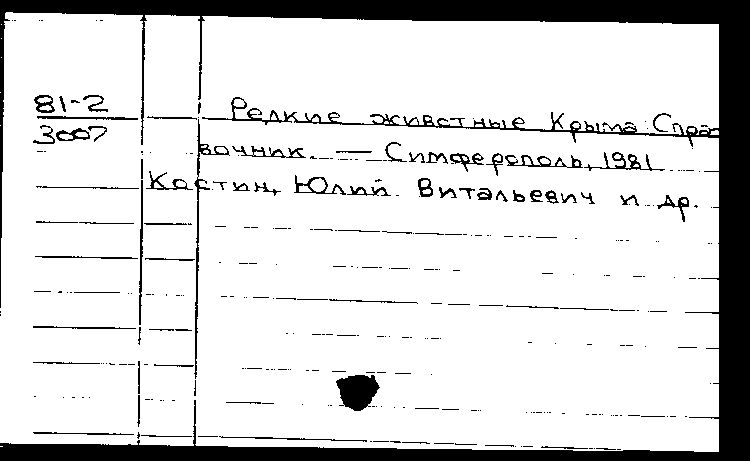 81-2 Редкие животные Крыма: Спра-
3007 вочник. — Симферополь, 1981
Костин, Юлий Витальевич и др.